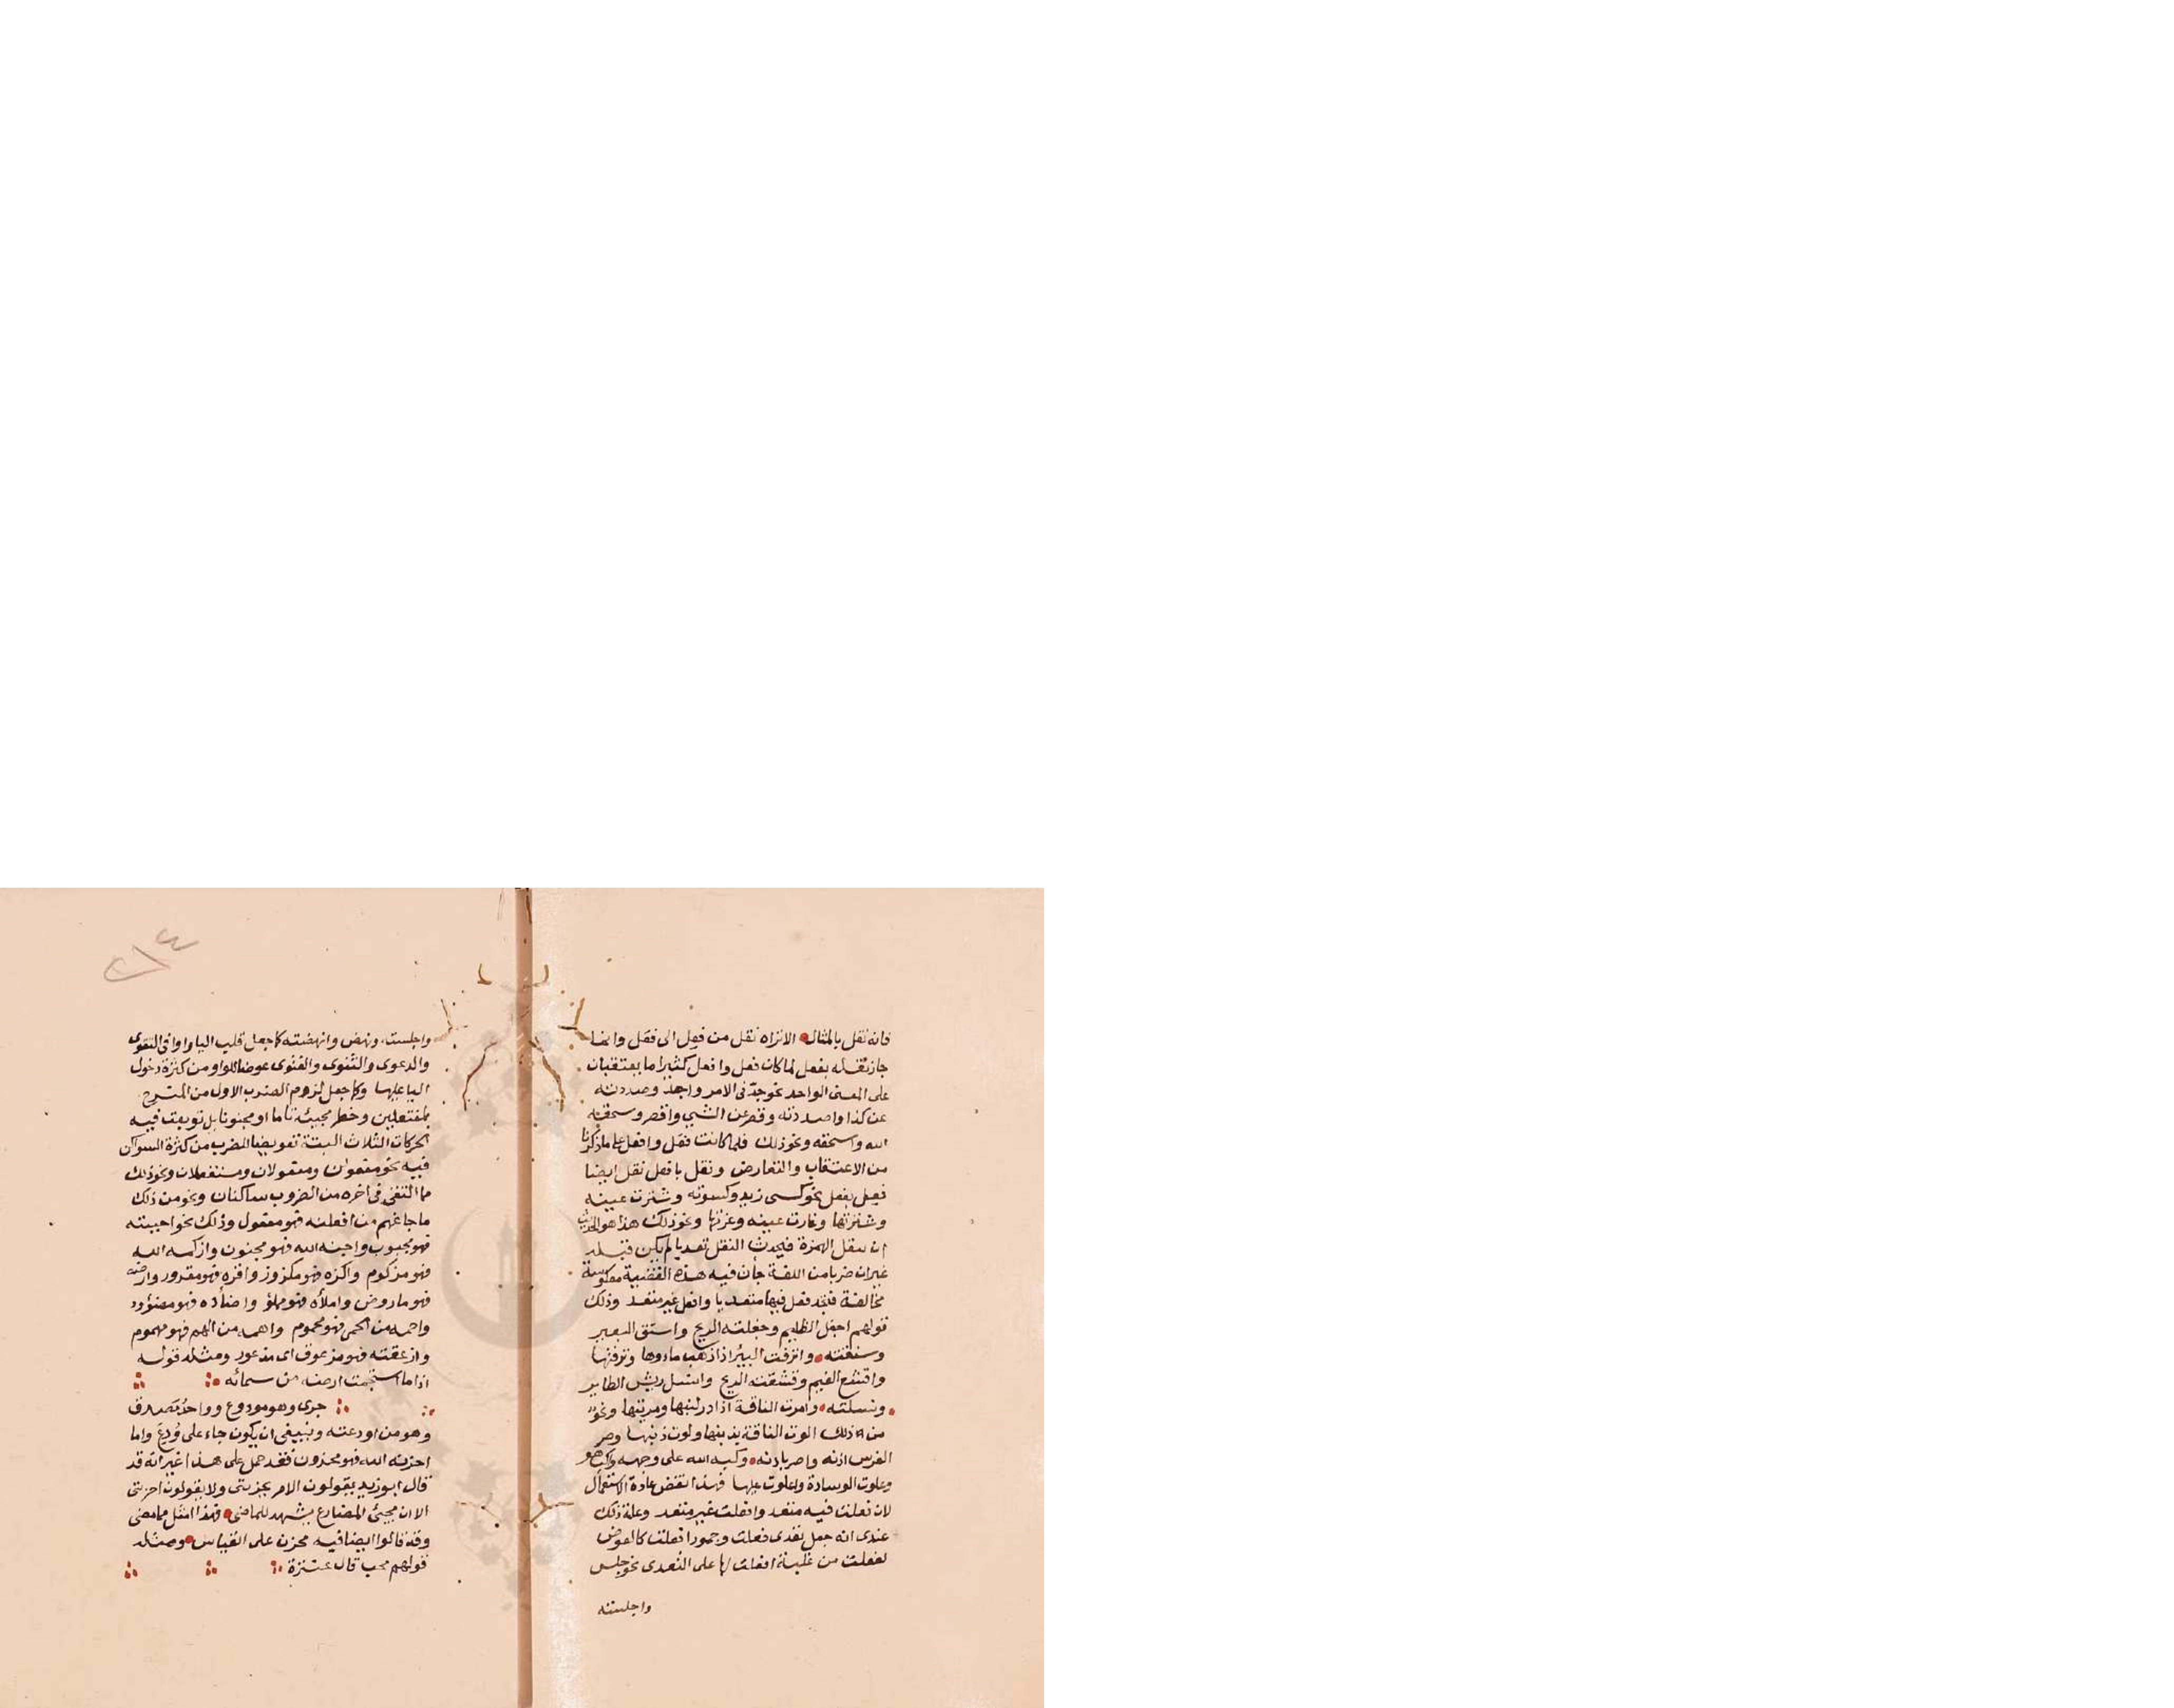 فانه نقل بالمثال الا تراه نقل من فعِل الى فعَل وانما
جاز نقله بفعل لما كان فعل وافعل كثيرا ما يعتقبان
على المعنى الواحد نحو جدّ في الامر واجدّ وصددته
عن كذا واصددته وقصر عن الشي واقصر وسحقه
الله واسحقه ونحو ذلك فلما كانت فعل وافعل على ما ذكرنا
من الاعتقاب والتعارض ونقل بافعل نقل ايضا
فعِل بفعَل نحو كسى زيد وكسوته وشترت عينه
وشترتها وغارت عينه وغرتها ونحو ذلك هذا هو الحديث
ان تنقل الهمزة فيحدث النقل تعديا لم يكن قبله
غير ان ضربا من اللغة جات فيه هذه القضية معكوسة
مخالفة فتجد فعل فيها متعديا وافعل غير متعد وذلك
قولهم اجفل الظليم وجفلته الريح واشنق البعير
وشنقته وانزفت البئر اذا ذهب ماؤها ونزفتها
واقشع الغيم وقشعته الريح وانسل ريش الطاير
ونسلته وامرت الناقة اذا در لبنها ومريتها ونحو
من ذلك الوت الناقة بذنبها ولوت ذنبها وصر
الفرس اذنه واصر باذنه وكبه الله على وجهه واكب هو
وعلوت الوسادة واعلوت عليها فهذا نقض عادة الاستعمال
لان فعلت فيه متعد وافعلت غير متعد وعلة ذلك
عندى انه جعل تعدى فعلت وجمود افعلت كالعوض
لفعلت من غلبة افعلت لها على التعدى نحو جلس
واجلسته
٢١٤
واجلسته ونهض وانهضته كما جعل قلب اليا واوا فى التقوى
والدعوى والثنوى والفتوى عوضا للواو من كثرة دخول
اليا عليها وكما جعل لزوم الضرب الاول من المنسرح
لمفتعلن وخطر مجيئه تاما او مخبونا بل توبعت فيه
الحركات الثلاث البتة تعويضا للضرب من كثرة السواكن
فيه نحو مفعولن ومفعولات ومستفعلان ونحو ذلك
مما التقى فى اخره من الضروب ساكنان ونحو من ذلك
ما جا عنهم من افعلته فهو مفعول وذلك نحو احببته
فهو محبوب واجنه الله فهو مجنون وازكمه الله
فهو مزكوم واكزه فهو مكزوز واقره فهو مقرور وارضه
فهو ماروض واملأه فهو مملؤ واضأده فهو مضؤود
واحمه من الحمى فهو محموم واهمه من الهم فهو مهموم
وازعقته فهو مزعوق اى مذعور ومثله قوله
اذا ما استحمت ارضه من سمائه
جرى وهو مودوع وواعد مصدق
وهو من اودعته وينبغى ان يكون جاء على وُدِعَ واما
احزنه الله فهو محزون فقد حمل على هذا غير انه قد
قال ابو زيد يقولون الامر يحزننى ولا يقولون احزننى
الا ان مجيئ المضارع يشهد للماضى فهذا امثل مما مضى
وقد قالوا ايضا فيه محزن على القياس ومثله
قولهم محب قال عنترة